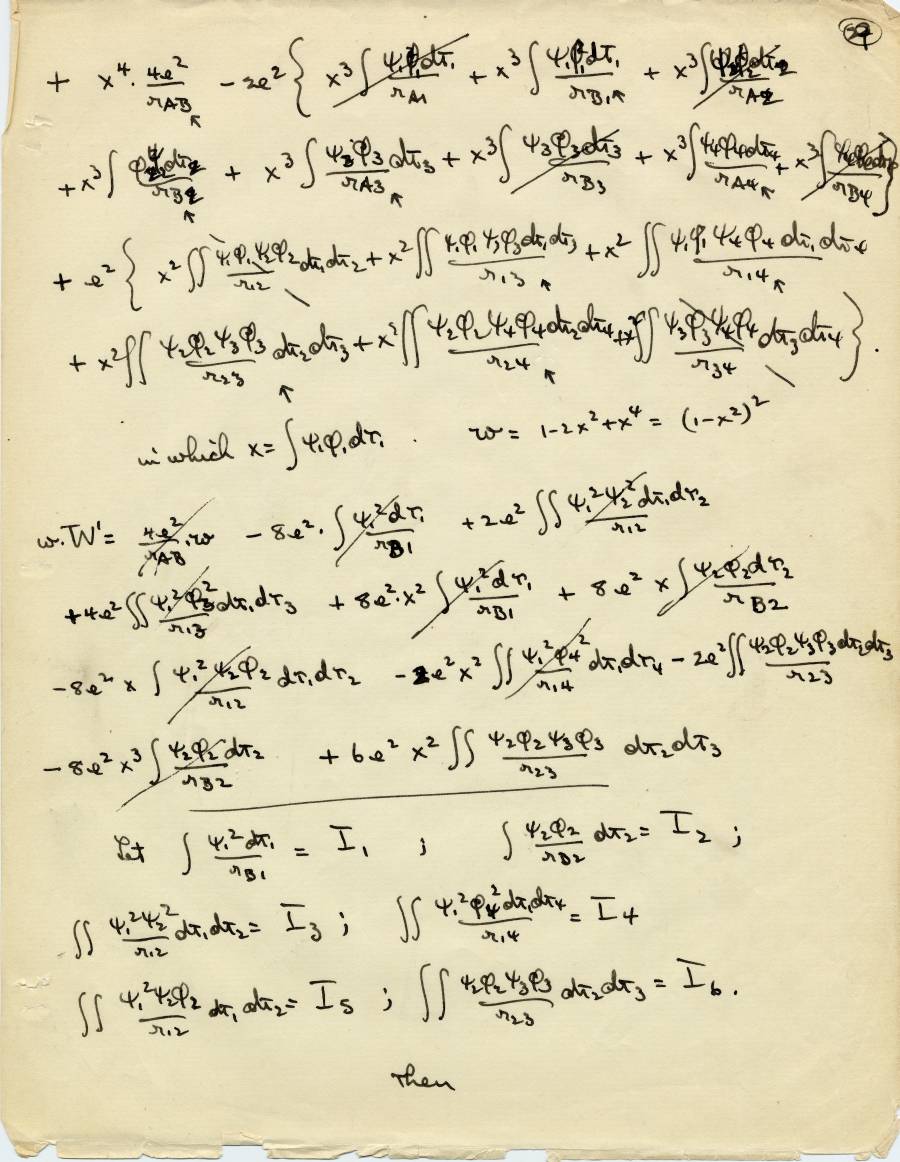 + x⁴ · 4e²/r_AB − 2e² { x³ ∫ ψ₁φ₁dτ₁/r_A1 + x³ ∫ ψ₁φ₁dτ₁/r_B1 + x³ ∫ ψ₂φ₂dτ₂/r_A2
+ x³ ∫ φ₂ψ₂dτ₂/r_B2 + x³ ∫ ψ₃φ₃/r_A3 dτ₃ + x³ ∫ ψ₃φ₃dτ₃/r_B3 + x³ ∫ ψ₄φ₄dτ₄/r_A4 + x³ ∫ ψ₄φ₄dτ₄/r_B4 }
+ e² { x² ∬ ψ₁φ₁ψ₂φ₂/r₁₂ dτ₁dτ₂ + x² ∬ ψ₁φ₁ψ₃φ₃dτ₁dτ₃/r₁₃ + x² ∬ ψ₁φ₁ψ₄φ₄ dτ₁dτ₄/r₁₄
+ x² ∬ ψ₂φ₂ψ₃φ₃/r₂₃ dτ₂dτ₃ + x² ∬ ψ₂φ₂ψ₄φ₄dτ₂dτ₄/r₂₄ + x² ∬ ψ₃φ₃ψ₄φ₄/r₃₄ dτ₃dτ₄ } .
in which x = ∫ ψ₁φ₁dτ₁ . w = 1−2x²+x⁴ = (1−x²)²
w.W' = 4e²/r_AB .w − 8e² · ∫ ψ₁²dτ₁/r_B1 + 2e² ∬ ψ₁²ψ₂²dτ₁dτ₂/r₁₂
+ 4e² ∬ ψ₁²φ₃²/r₁₃ dτ₁dτ₃ + 8e² · x² ∫ ψ₁²dτ₁/r_B1 + 8e² x ∫ ψ₂φ₂dτ₂/r_B2
− 8e² x ∫ ψ₁²ψ₂φ₂/r₁₂ dτ₁dτ₂ − 2e² x² ∬ ψ₁²φ₄²/r₁₄ dτ₁dτ₄ − 2e² ∬ ψ₂φ₂ψ₃φ₃dτ₂dτ₃/r₂₃
− 8e² x³ ∫ ψ₂φ₂dτ₂/r_B2 + 6e² x² ∬ ψ₂φ₂ψ₃φ₃/r₂₃ dτ₂dτ₃
Let ∫ ψ₁²dτ₁/r_B1 = I₁ ; ∫ ψ₂φ₂/r_B2 dτ₂ = I₂ ;
∬ ψ₁²ψ₂²/r₁₂ dτ₁dτ₂ = I₃ ; ∬ ψ₁²φ₄²dτ₁dτ₄/r₁₄ = I₄
∬ ψ₁²ψ₂φ₂/r₁₂ dτ₁dτ₂ = I₅ ; ∬ ψ₂φ₂ψ₃φ₃/r₂₃ dτ₂dτ₃ = I₆ .
Then